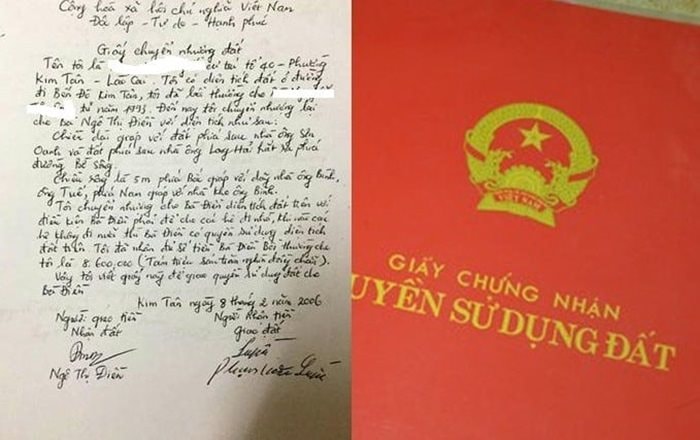 Cộng hoà xã hội chủ nghĩa Việt Nam
Độc lập - Tự do - Hạnh phúc
Giấy chuyển nhượng đất
Tên tôi là cư trú tổ 40 - Phường
Kim Tân - Lào Cai. Tôi có diện tích đất ở đường
đi Bến Đá Kim Tân, tôi đã bồi thường cho
từ năm 1993. Đến nay tôi chuyển nhượng lại
cho Bà Ngô Thị Điền với diện tích như sau:
Chiều dài giáp với đất phía sau nhà ông Sâu
Oanh và đất phía sau nhà ông Long Hải hắt ra phía
đường Bờ Sông.
Chiều rộng là 5m phía Bắc giáp với dãy nhà ông Bình,
ông Tuế, phía Nam giáp với nhà kho ông Bình.
Tôi chuyển nhượng cho Bà Điền diện tích đất trên với
điều kiện Bà Điền phải để cho các hệ đi nhờ, khi nào các
hệ không đi nước thì Bà Điền có quyền sử dụng diện tích
đất trên. Tôi đã nhận đủ số tiền Bà Điền Bồi thường cho
tôi là 8.600.000 (Tám triệu sáu trăm nghìn đồng chẵn).
Vậy tôi viết giấy này để giao quyền sử dụng đất cho
Bà Điền
Kim Tân ngày 8 tháng 2 năm 2006
Người giao tiền Người nhận tiền
Nhận đất Giao đất
Ngô Thị Điền
VIỆT NAM
GIẤY CHỨNG NHẬN
UYỀN SỬ DỤNG ĐẤT